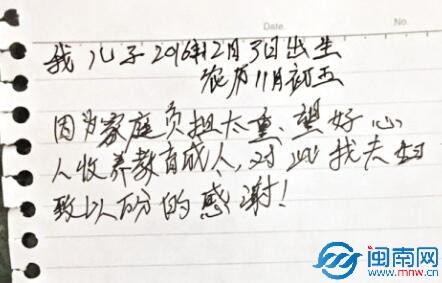 Date. No.
我儿子2016年12月3日出生
农历11月初五
因为家庭负担太重、望好心
人收养教育成人,对此我夫妇
致以万分的感谢!
闽南网
www.mnw.cn